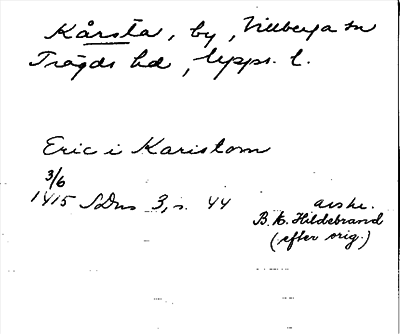 Kårsta, by, Villberga sn
Trögds hd, Upps. l.
Eric i Karistom
3/6
1415 SDns 3, s. 44
avskr.
B. E. Hildebrand
(efter orig.)